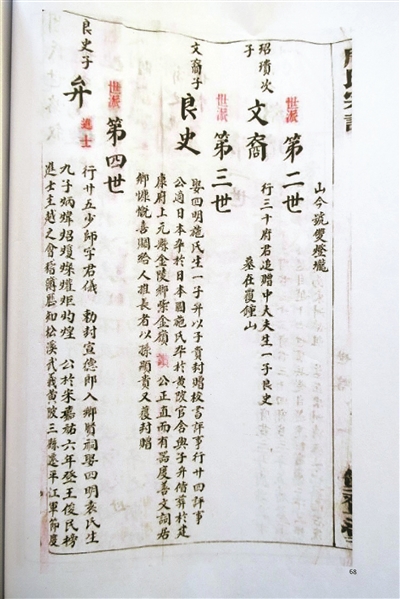 山今號雙燈壠
世派 第二世
紹瓚次子 文裔 行三十府君追贈中大夫生一子良史
墓在覆鐘山
世派 第三世
文裔子 良史 娶四明施氏生一子弁以子貴封贈校書評事行廿四評事
公適日本卒於日本國施氏卒於黃陂官舍與子弁偕葬於建
康府上元縣金陵鄉紫金嶺 公正直而有器度善文詞居
鄉慷慨喜賙給人推長者以孫顯貴又覆封贈
世派 第四世
良史子 弁 進士 行廿五少師字君儀 勅封宣德郎入鄉賢祠娶四明袁氏生
九子炳煒炤熳燦爟炬灼煌 公於宋嘉祐六年登王俊民榜
進士主越之會稽簿縣知松溪武義黃陂三縣遷平江軍節度
68